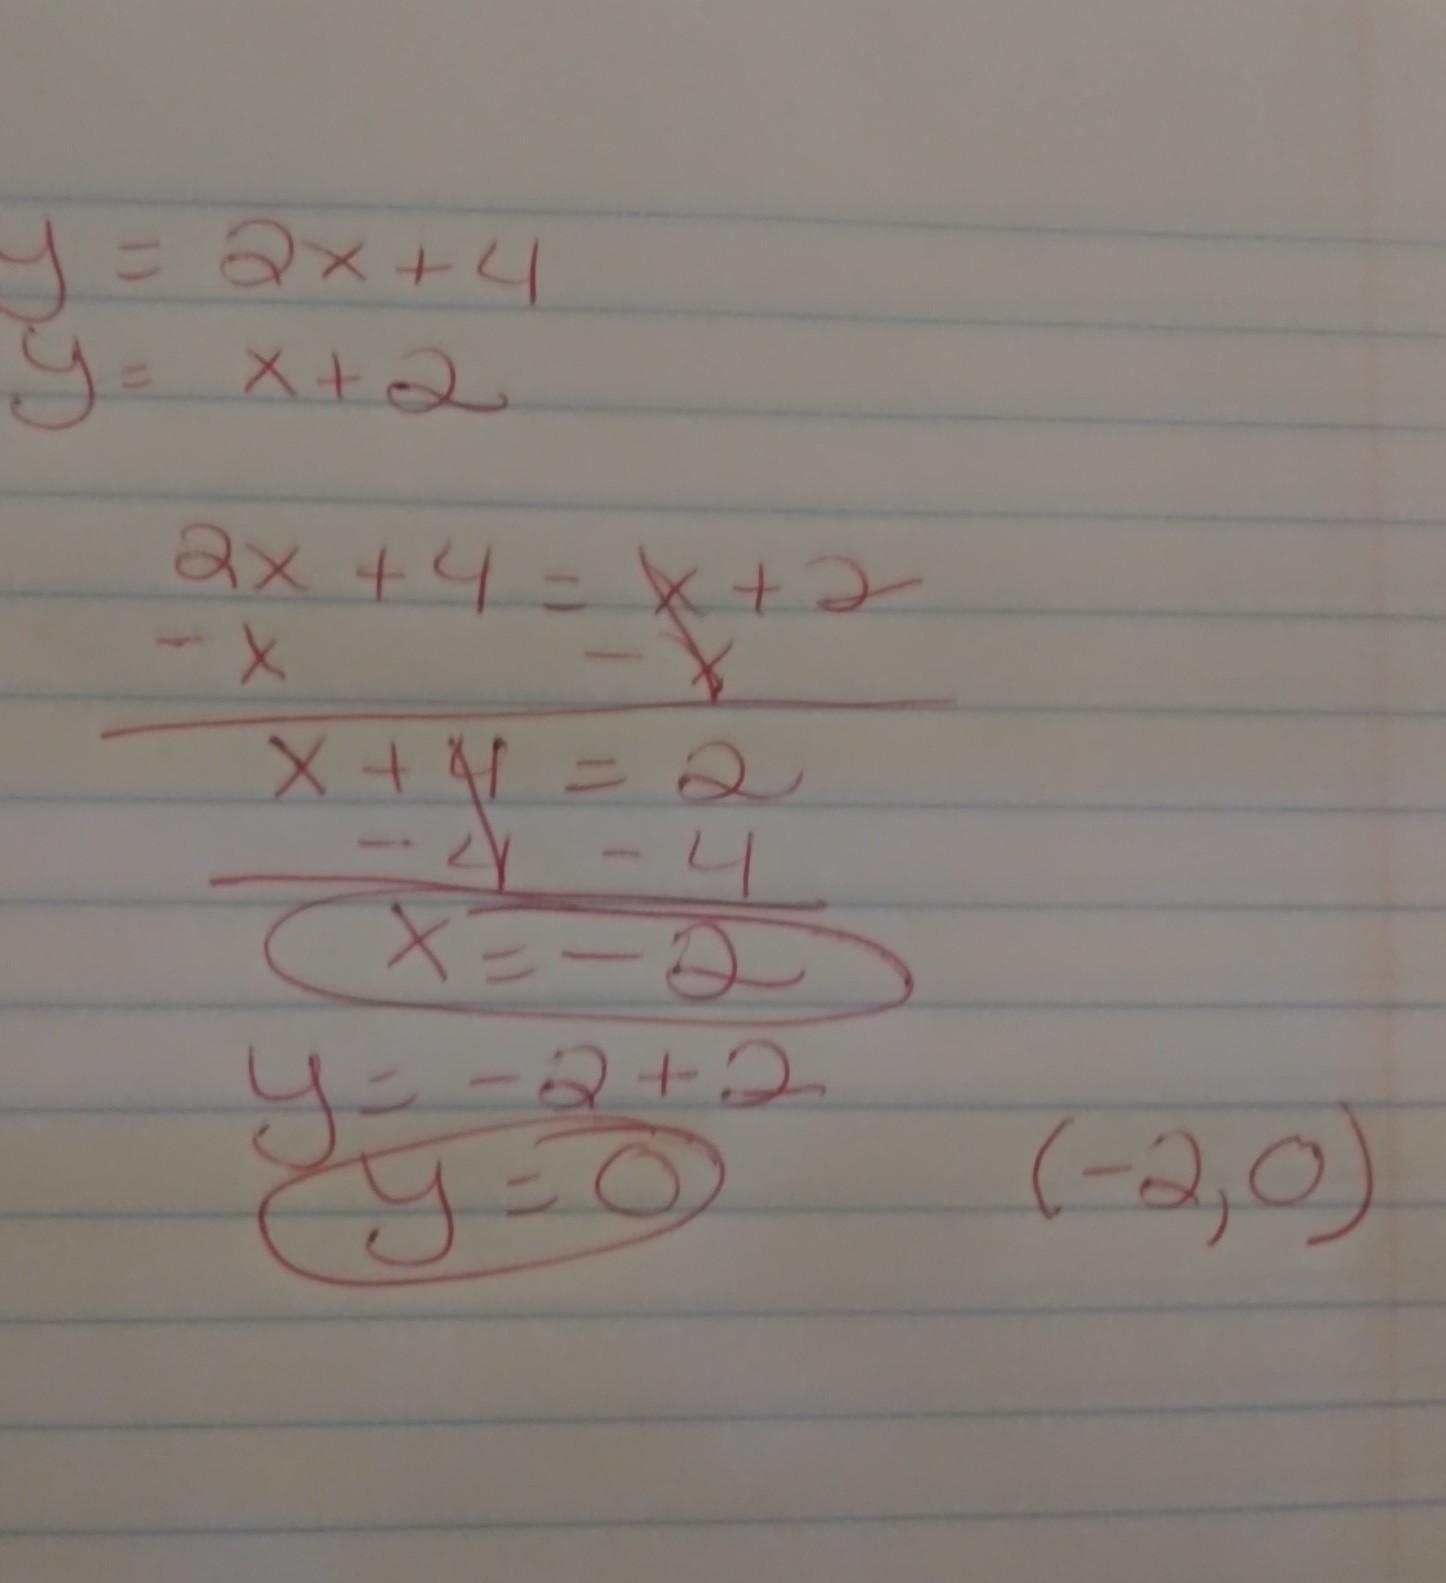 y = 2x + 4
y = x + 2
2x + 4 = x + 2
- x - x
x + 4 = 2
- 4 - 4
x = - 2
y = - 2 + 2
y = 0 (-2, 0)